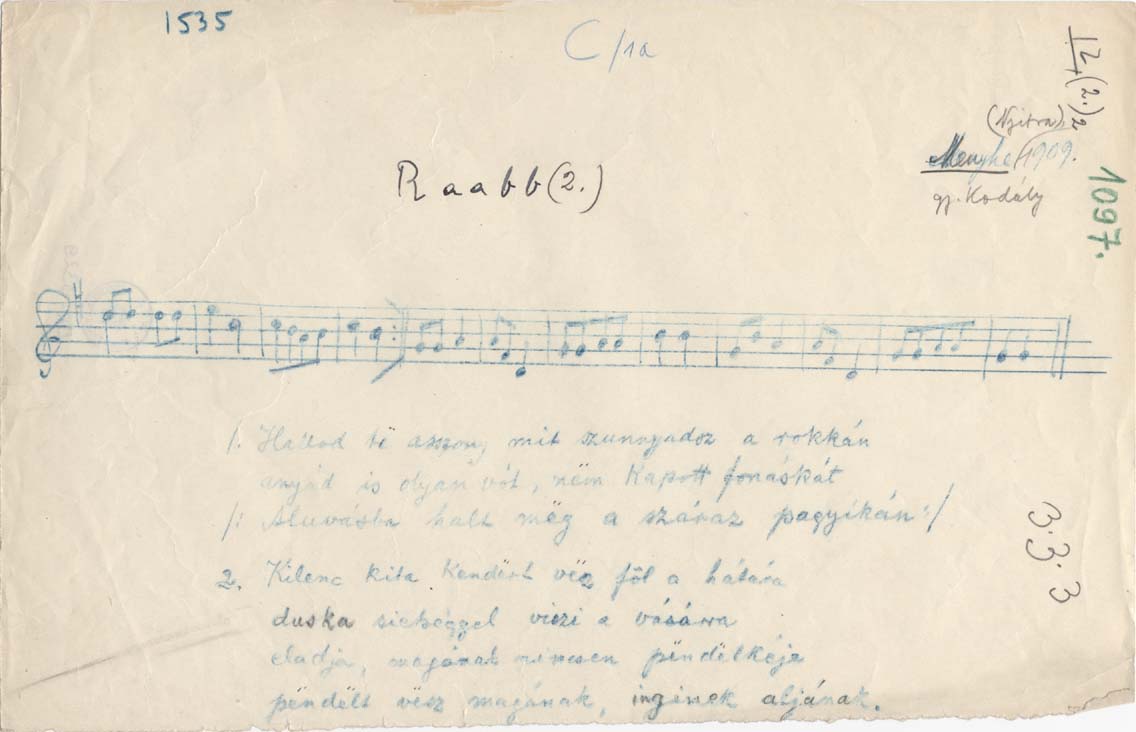 1535
C/1a
12 (2.) 2
(Nyitra)
Menyhe, 1909.
gy. Kodály
1097.
Raabb (2.)
1. Hallod të asszony mit szunnyadsz a rokkán
anyád is olyan vót, nëm kapott fonáskát
/: Aluvásba halt mëg a száraz pagyikán :/
2. Kilenc kita kendërt vësz föl a hátára
duska siebeggel viszi a vásárra
eladja, magának nincsen pëndëlkéje
pëndëlt vësz magának, inginek aljának.
3. 3. 3